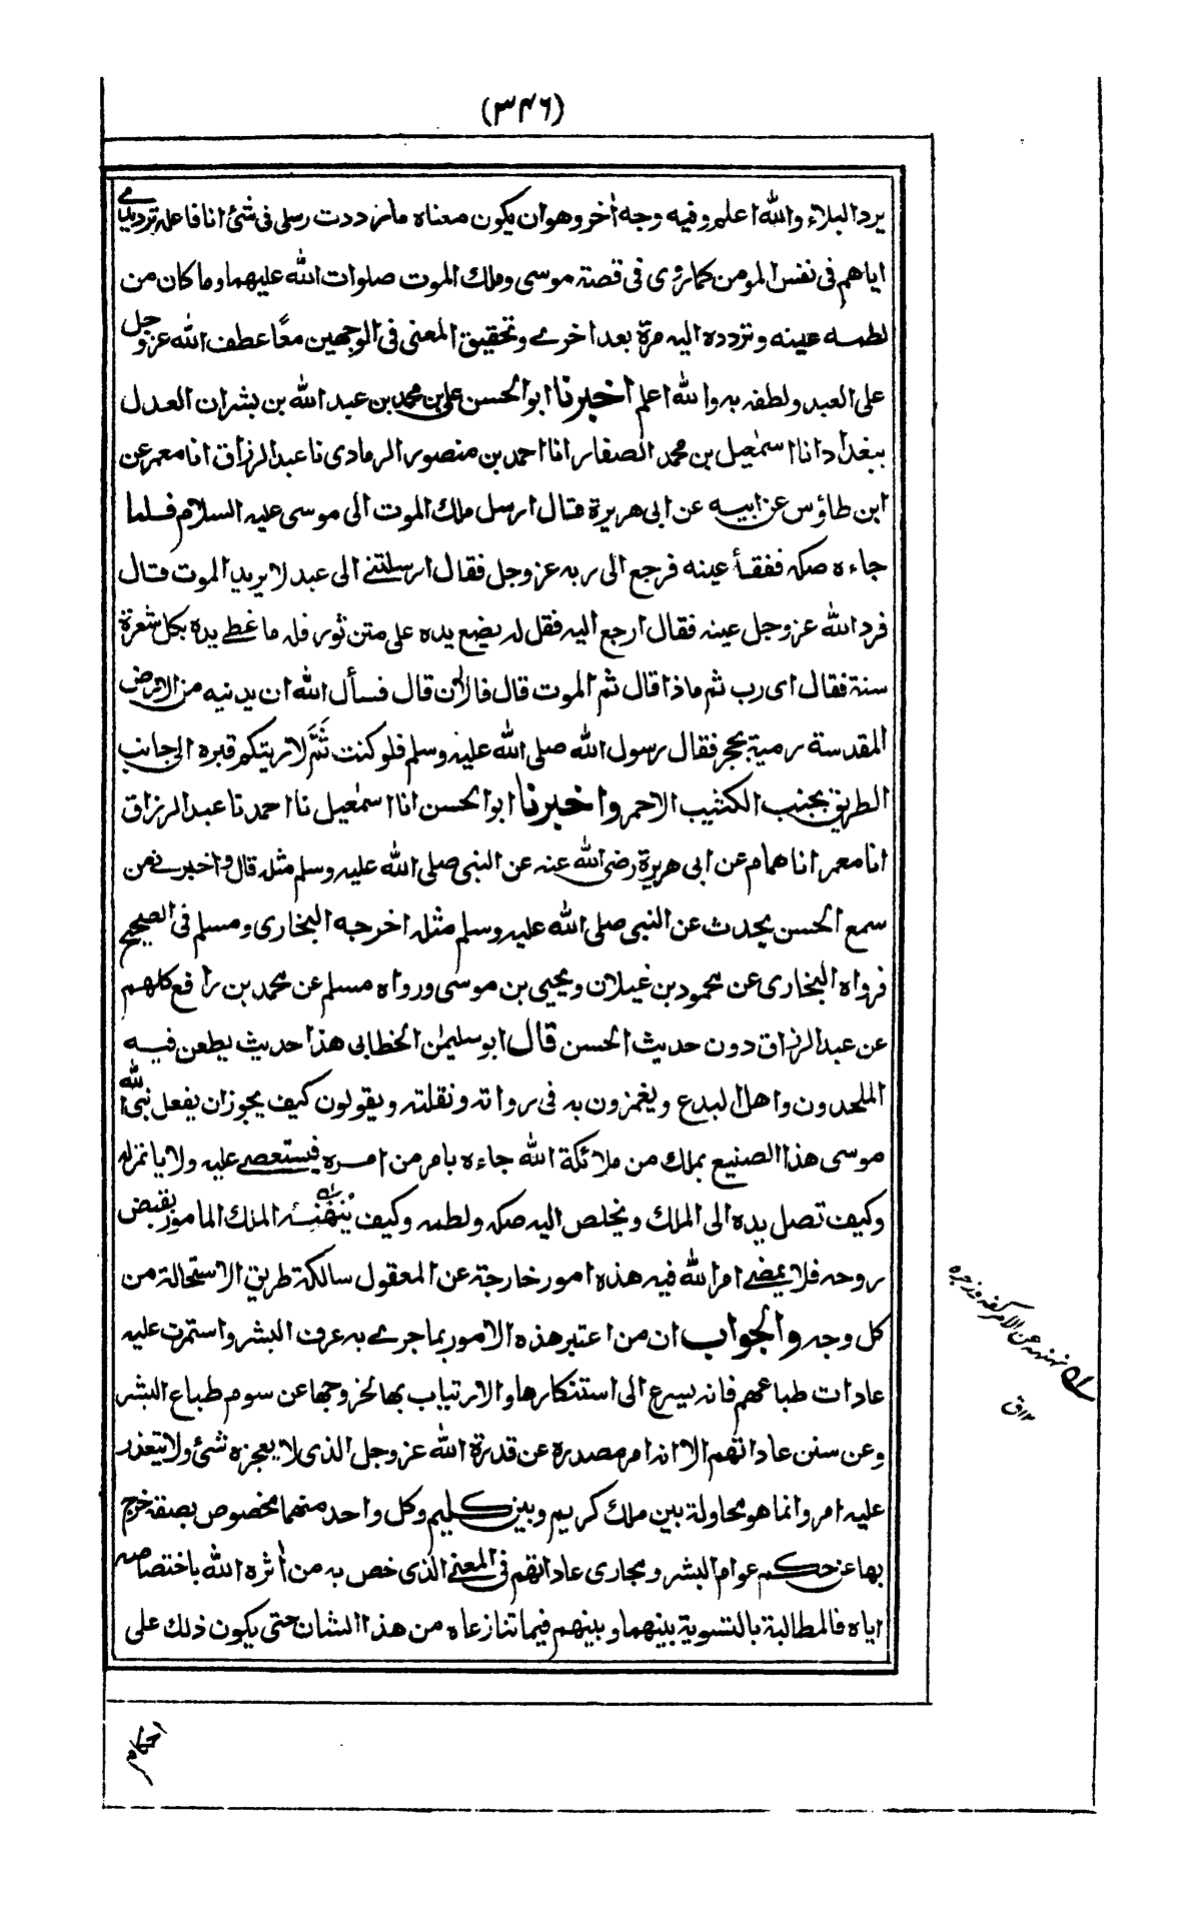 (٣٤٦)
يرد البلاء والله اعلم وفيه وجه اٰخر وهوان يكون معناه مازددت رسلى فى شئ انا فاعله ترديدى
اياهم فى نفس المومن كماروى فى قصة موسى وملك الموت صلوات الله عليهما وما كان من
لطمه عينه وتردده اليه مرة بعد اخرى وتحقيق المعنى فى الوجهين معًا عطف الله عزوجل
على العبد ولطفه به والله اعلم اخبرنا ابوالحسن على بن محمد بن عبد الله بن بشران العدل
ببغداد انا اسمٰعيل بن محمد الصفار انا احمد بن منصور الرمادى نا عبد الرزاق انا معمر عن
ابن طاؤس عن ابيه عن ابى هريرة قال ارسل ملك الموت الى موسى عليه السلام فلما
جاءه صكه ففقأ عينه فرجع الى ربه عزوجل فقال ارسلتنى الى عبد لا يريد الموت قال
فرد الله عزوجل عينه فقال ارجع اليه فقل له يضع يده على متن ثور فله ما غطى يده بكل شعرة
سنة فقال اى رب ثم ماذا قال ثم الموت قال فالاٰن قال فسأل الله ان يدنيه من الارض
المقدسة رمية بحجر فقال رسول الله صلى الله عليه وسلم فلوكنت ثَمَّ لاريتكم قبره الى جانب
الطريق بجنب الكثيب الاحمر واخبرنا ابوالحسن انا اسمٰعيل نا احمد نا عبد الرزاق
انا معمر انا همام عن ابى هريرة رضى الله عنه عن النبى صلى الله عليه وسلم مثله قال واخبرنى من
سمع الحسن يحدث عن النبى صلى الله عليه وسلم مثله اخرجه البخارى ومسلم فى الصحيح
فرواه البخارى عن محمود بن غيلان ويحيى بن موسى ورواه مسلم عن محمد بن رافع كلهم
عن عبد الرزاق دون حديث الحسن قال ابوسليمٰن الخطابى هذا حديث يطعن فيه
الملحدون واهل البدع ويغمزون به فى رواته ونقلته ويقولون كيف يجوزان يفعل نبى الله
موسى هذا الصنيع بملك من ملائكة الله جاءه بامر من امره فيستعصى عليه ولا ياتمرله
وكيف تصل يده الى الملك ويخلص اليه صكه ولطمه وكيف يُنَهْنِهُ الملك المامور بقبض
روحه فلا يمضى امر الله فيه هذه امور خارجة عن المعقول سالكة طريق الاستحالة من
كل وجه والجواب ان من اعتبر هذه الامور بما جرى به عرف البشر واستمرت عليه
عادات طباعهم فانه يسرع الى استنكارها والارتياب بها لخروجها عن سوم طباع البشر
وعن سنن عاداتهم الا انه امر مصدره عن قدرة الله عزوجل الذى لا يعجزه شئ ولا يتعذر
عليه امر وانما هو محاولة بين ملك كريم وبين كليم وكل واحد منهما مخصوص بصفة خرج
بها عن حكم عوام البشر ومجارى عاداتهم فى المعنى الذى خص به من اٰثره الله باختصاصه
اياه فالمطالبة بالتسوية بينهما وبينهم فيما تنازعاه من هذا الشان حتى يكون ذلك على
ـه نهنهه عن الامر كفه وزجره
احكام